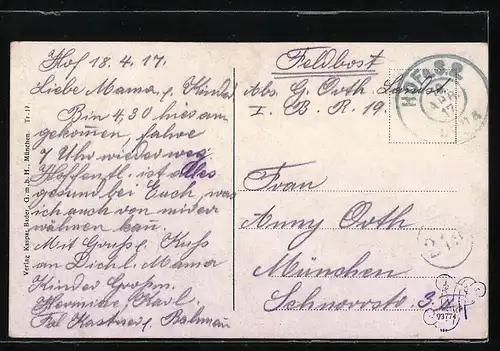 Hof 18.4.17.
Liebe Mama, Kinder
Bin 4,30 hier an
gekommen, fahre
7 Uhr wieder weg.
Hoffentl. ist Alles
gesund bei Euch, was
ich auch von mir er
wähnen kan.
Mit Gruß, Kuss
an Dich l. Mama
Kinder Großm.
Hermine, Karl.
Frl Kastner,
Verlag Kaspar Bader, G. m. b. H., München. Tr. 11
Feldpost
Abs. G. Orth Landst.
I. B. R. 19.
HOF a. S. 2
18 APR 17
Frau
Anny Orth
München
Schnorrstr. 3
93774